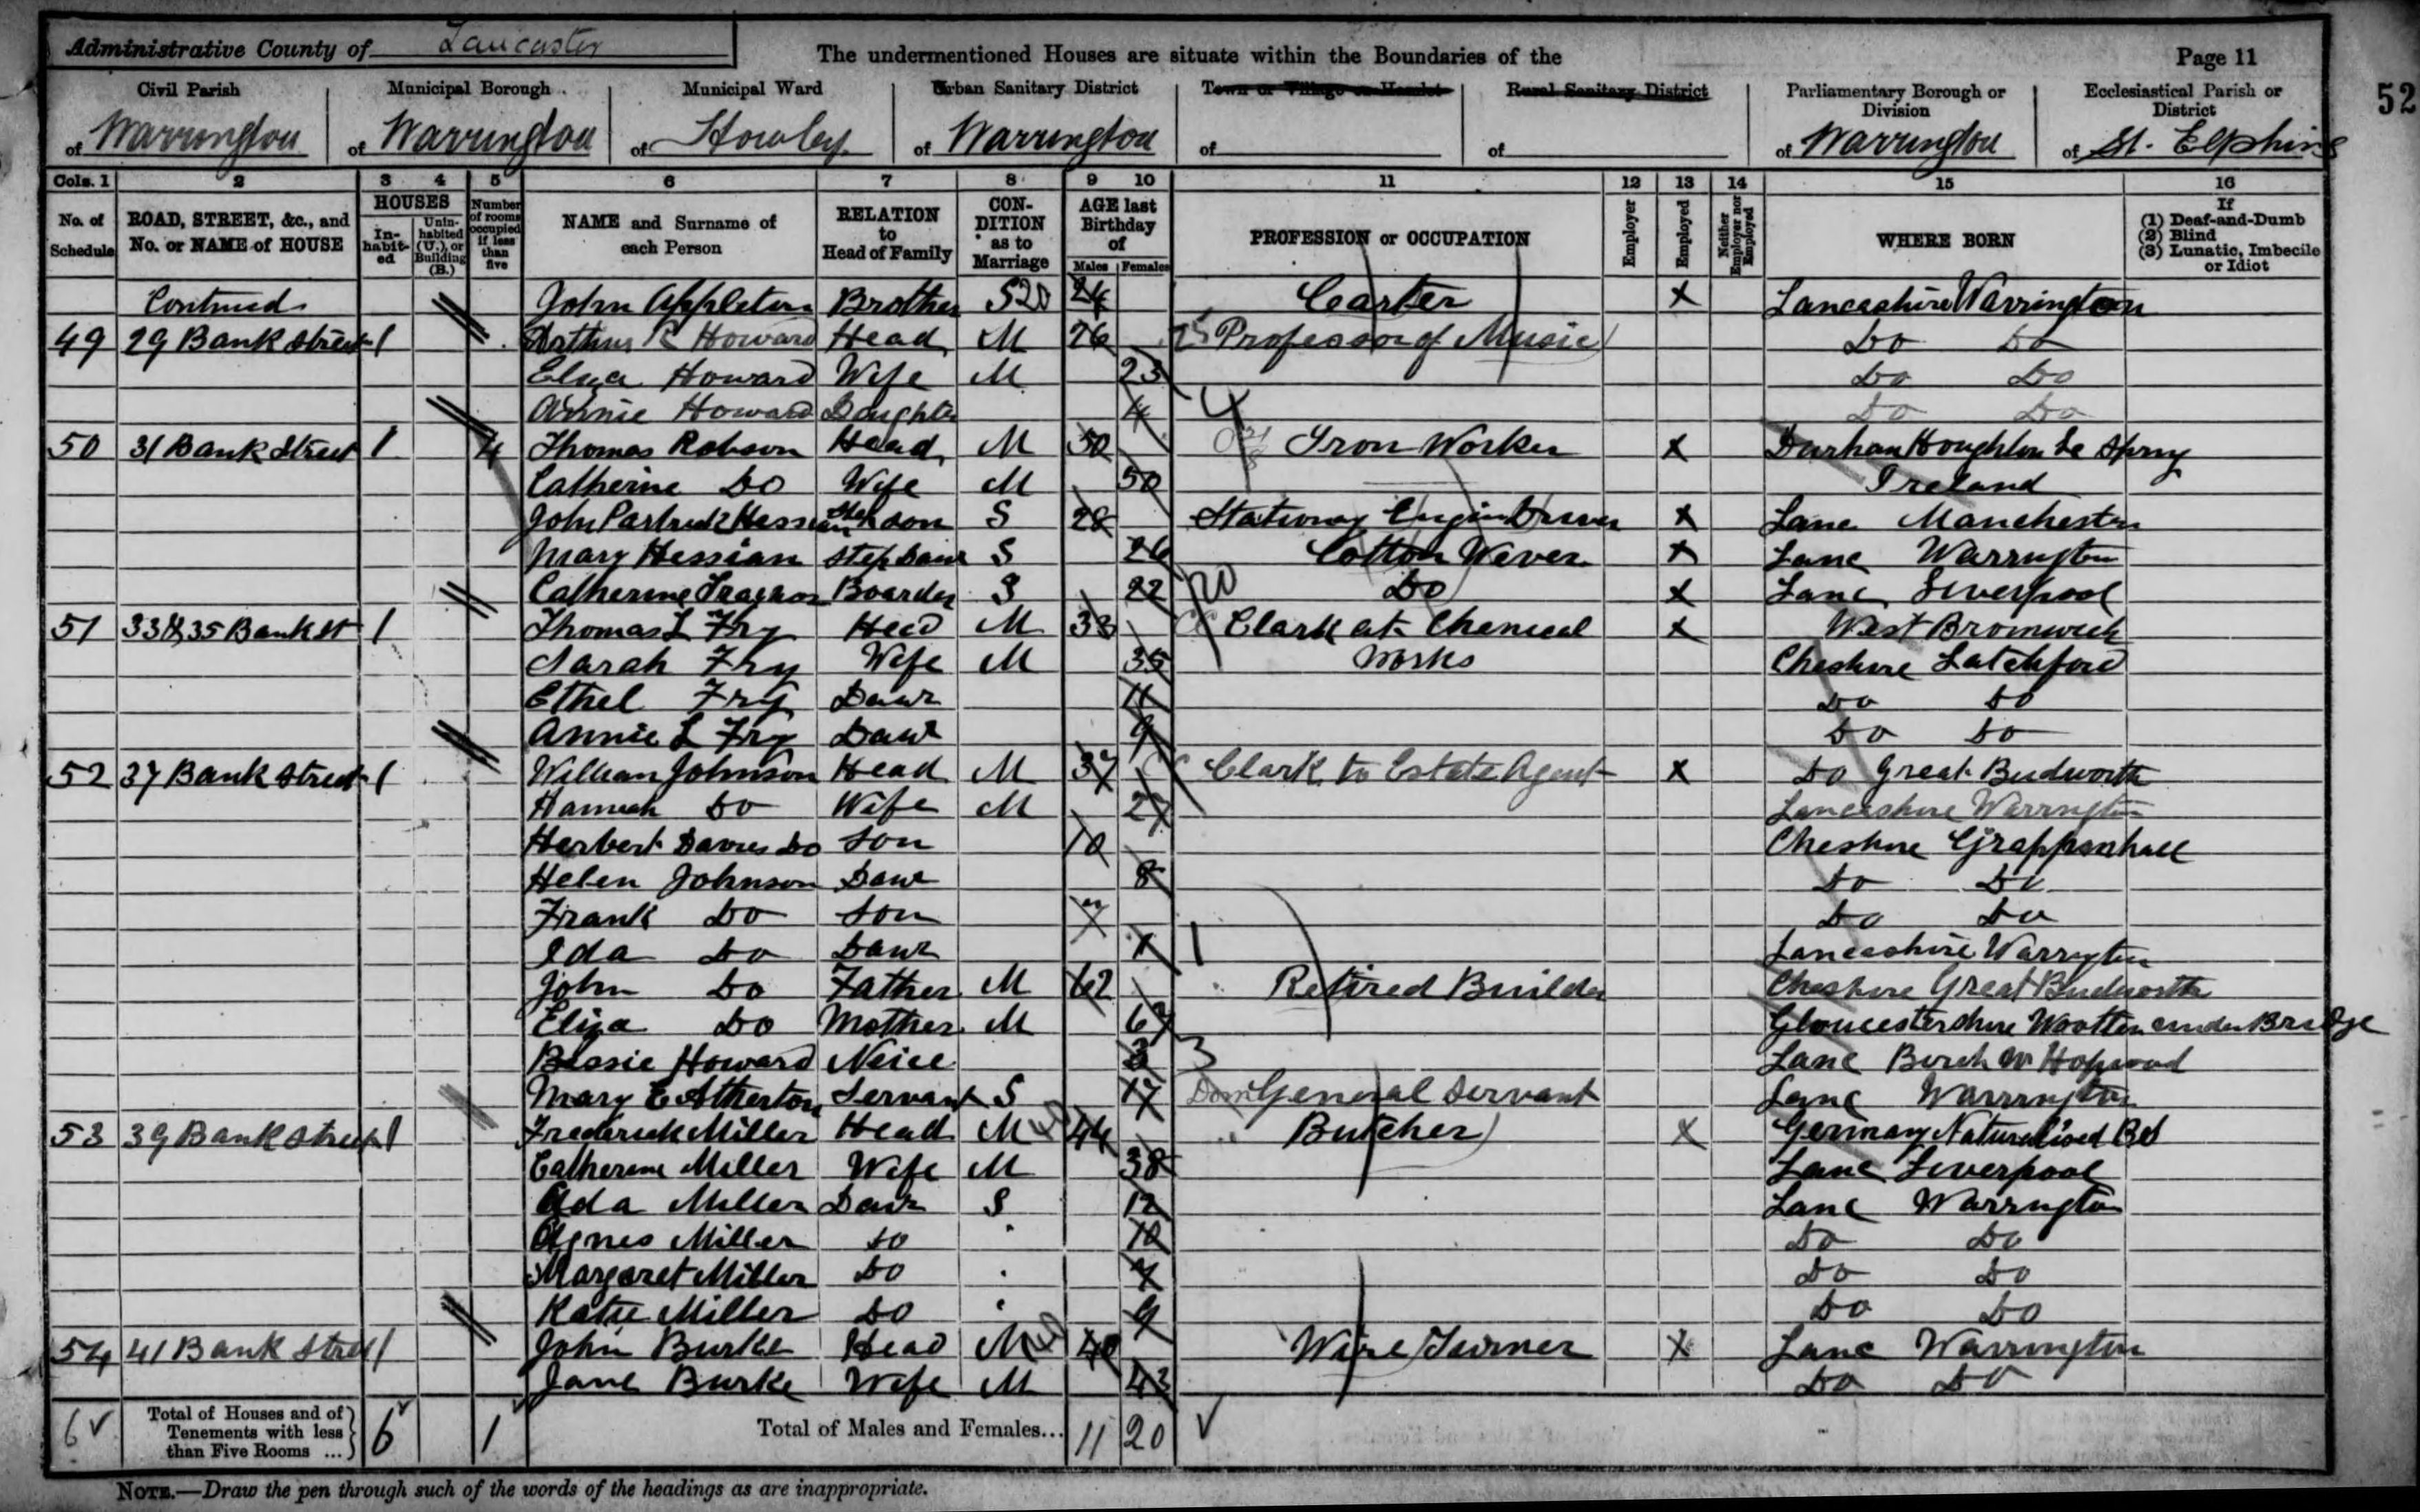 Administrative County of Lancaster
The undermentioned Houses are situate within the Boundaries of the
Page 11
52
Civil Parish of Warrington
Municipal Borough of Warrington
Municipal Ward of Howley
Urban Sanitary District of Warrington
Town or Village or Hamlet of
Rural Sanitary District of
Parliamentary Borough or Division of Warrington
Ecclesiastical Parish or District of St. Elphins
Cols. 1 2 3 4 5 6 7 8 9 10 11 12 13 14 15 16
No. of Schedule
ROAD, STREET, &c., and No. or NAME of HOUSE
HOUSES
In-habit-ed
Unin-habited (U.), or Building (B.)
Number of rooms occupied if less than five
NAME and Surname of each Person
RELATION to Head of Family
CON-DITION as to Marriage
AGE last Birthday of
Males Females
PROFESSION or OCCUPATION
Employer
Employed
Neither Employer nor Employed
WHERE BORN
If (1) Deaf-and-Dumb (2) Blind (3) Lunatic, Imbecile or Idiot
Continued John Appleton Brother S 20 24 Carter X Lancashire Warrington
49 29 Bank Street 1 Arthur R Howard Head M 26 Professor of Music Do Do
Eliza Howard Wife M 23 Do Do
Annie Howard Daughter 4 Do Do
50 31 Bank Street 1 4 Thomas Robson Head M 50 Iron Worker X Durham Houghton Le Spring
Catherine Do Wife M 50 Ireland
John Partrick Hessian Step son S 28 Stationary Engin Driver X Lanc Manchester
Mary Hessian Step Daur S 26 Cotton Wever X Lanc Warrington
Catherine Boarder S 22 Do X Lanc Liverpool
51 33 & 35 Bank St 1 Thomas L Fry Head M 33 Clark at Chemical X West Bromwich
Sarah Fry Wife M 35 Works Cheshire Latchford
Ethel Fry Daur 11 Do Do
Annie L Fry Daur 9 Do Do
52 37 Bank Street 1 William Johnson Head M 37 Clark to Estate Agent X Do Great Budworth
Hannah Do Wife M 27 Lancashire Warrington
Herbert Davies Do Son 10 Cheshire Grappenhall
Helen Johnson Daur 8 Do Do
Frank Do Son Do Do
Ida Do Daur 1 1 Lancashire Warrington
John Do Father M 62 Retired Builder Cheshire Great Budworth
Eliza Do Mother M 67 Gloucestershire Wootten under Bridge
Bessie Howard Neice 3 3 Lanc Birch Nr Hopwood
Mary E Atherton Servant S 17 Dom General Servant Lanc Warrington
53 39 Bank Street 1 Frederick Miller Head M 44 Butcher X Germany Naturalised
Catherine Miller Wife M 38 Lanc Liverpool
Ada Miller Daur S 12 Lanc Warrington
Agnes Miller Do 10 Do Do
Margaret Miller Do 7 Do Do
Katie Miller Do Do Do
54 41 Bank Street 1 John Burke Head M 40 Wire Turner X Lanc Warrington
Jane Burke Wife M 43 Do Do
6 Total of Houses and of Tenements with less than Five Rooms ... 6 1 Total of Males and Females... 11 20
NOTE.—Draw the pen through such of the words of the headings as are inappropriate.